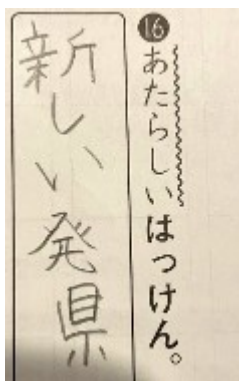 ⓰あたらしいはっけん。
新しい発県